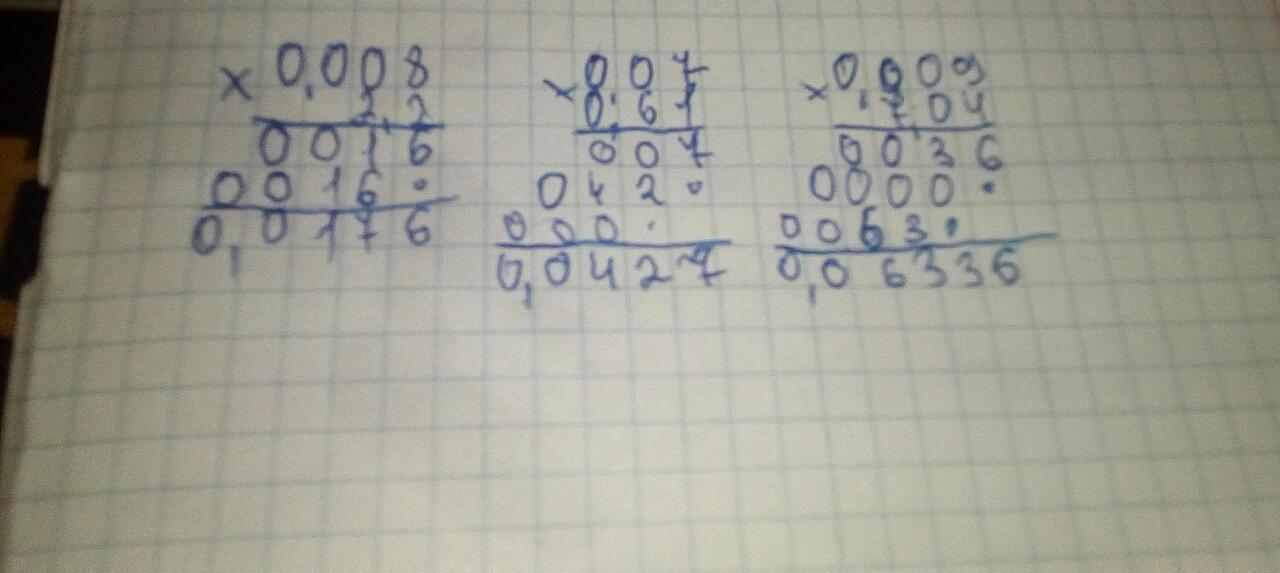 × 0,008
2,2
0016
0016
0,0176
× 007
0,61
007
042
000
0,0427
× 0,009
7,04
0036
0000
0063
0,06336